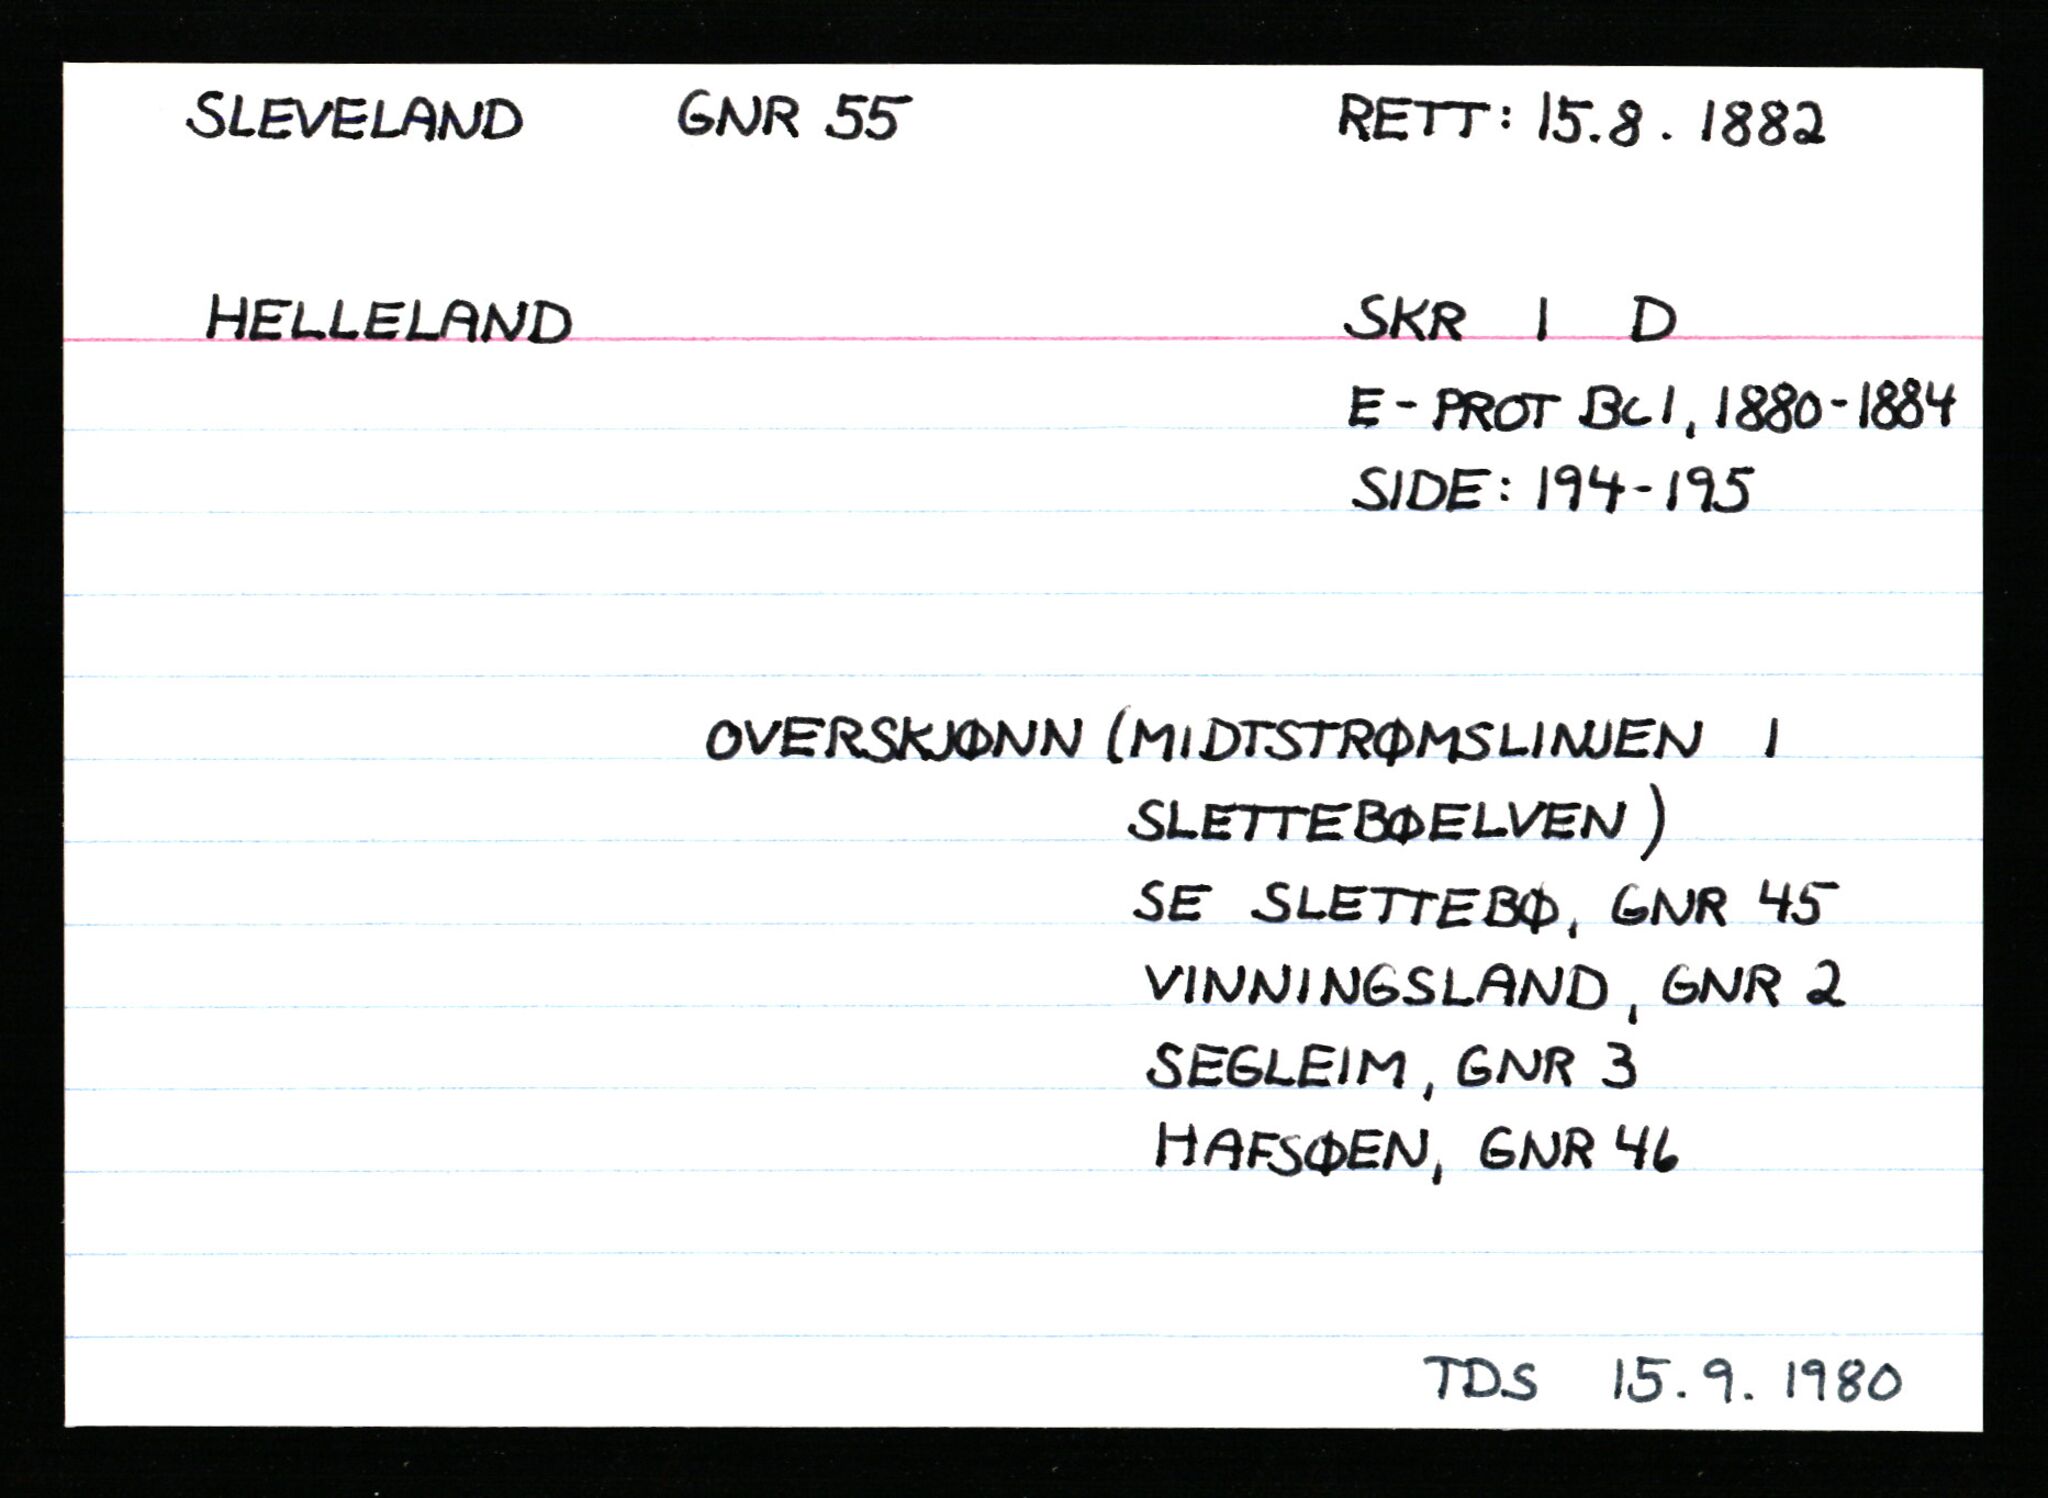 SLEVELAND GNR 55 RETT: 15.8. 1882
HELLELAND SKR 1 D
E-PROT Bc1, 1880-1884
SIDE: 194-195
OVERSKJØNN (MIDTSTRØMSLINJEN I
SLETTEBØELVEN)
SE SLETTEBØ, GNR 45
VINNINGSLAND, GNR 2
SEGLEIM, GNR 3
HAFSØEN, GNR 46
TDS 15.9.1980